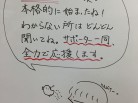 本格的に始まったね!
わからない所はどんどん
聞いてね。サポーター一同
全力で応援します。